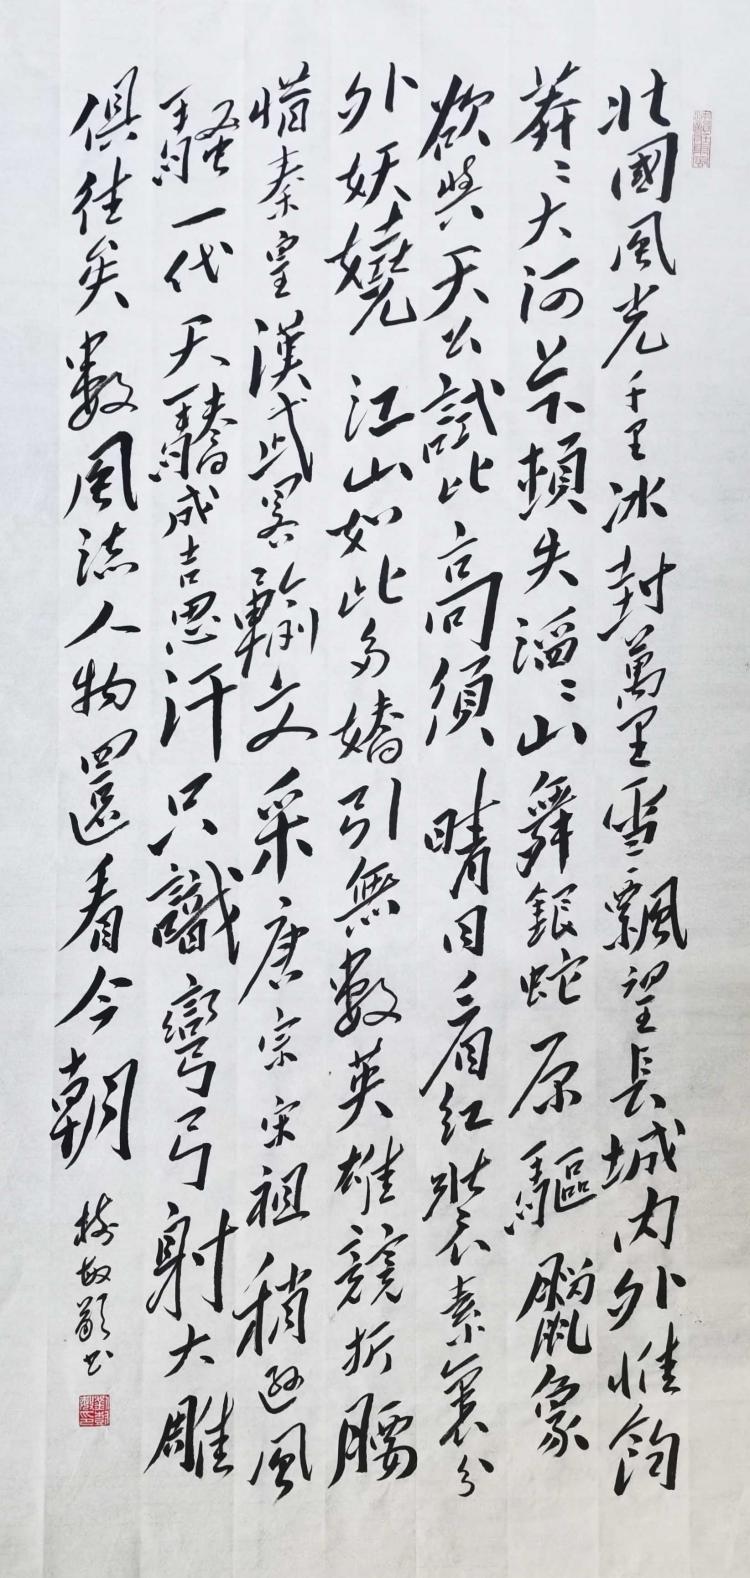 北國風光千里冰封萬里雪飄望長城内外惟餘
莽〻大河上下頓失滔〻山舞銀蛇原驅臘象
欲與天公試比高須晴日看紅裝素裹分
外妖嬈江山如此多嬌引無數英雄競折腰
惜秦皇漢武畧輸文采唐宗宋祖稍遜風
騷一代天驕成吉思汗只識彎弓射大雕
俱往矣數風流人物還看今朝
書